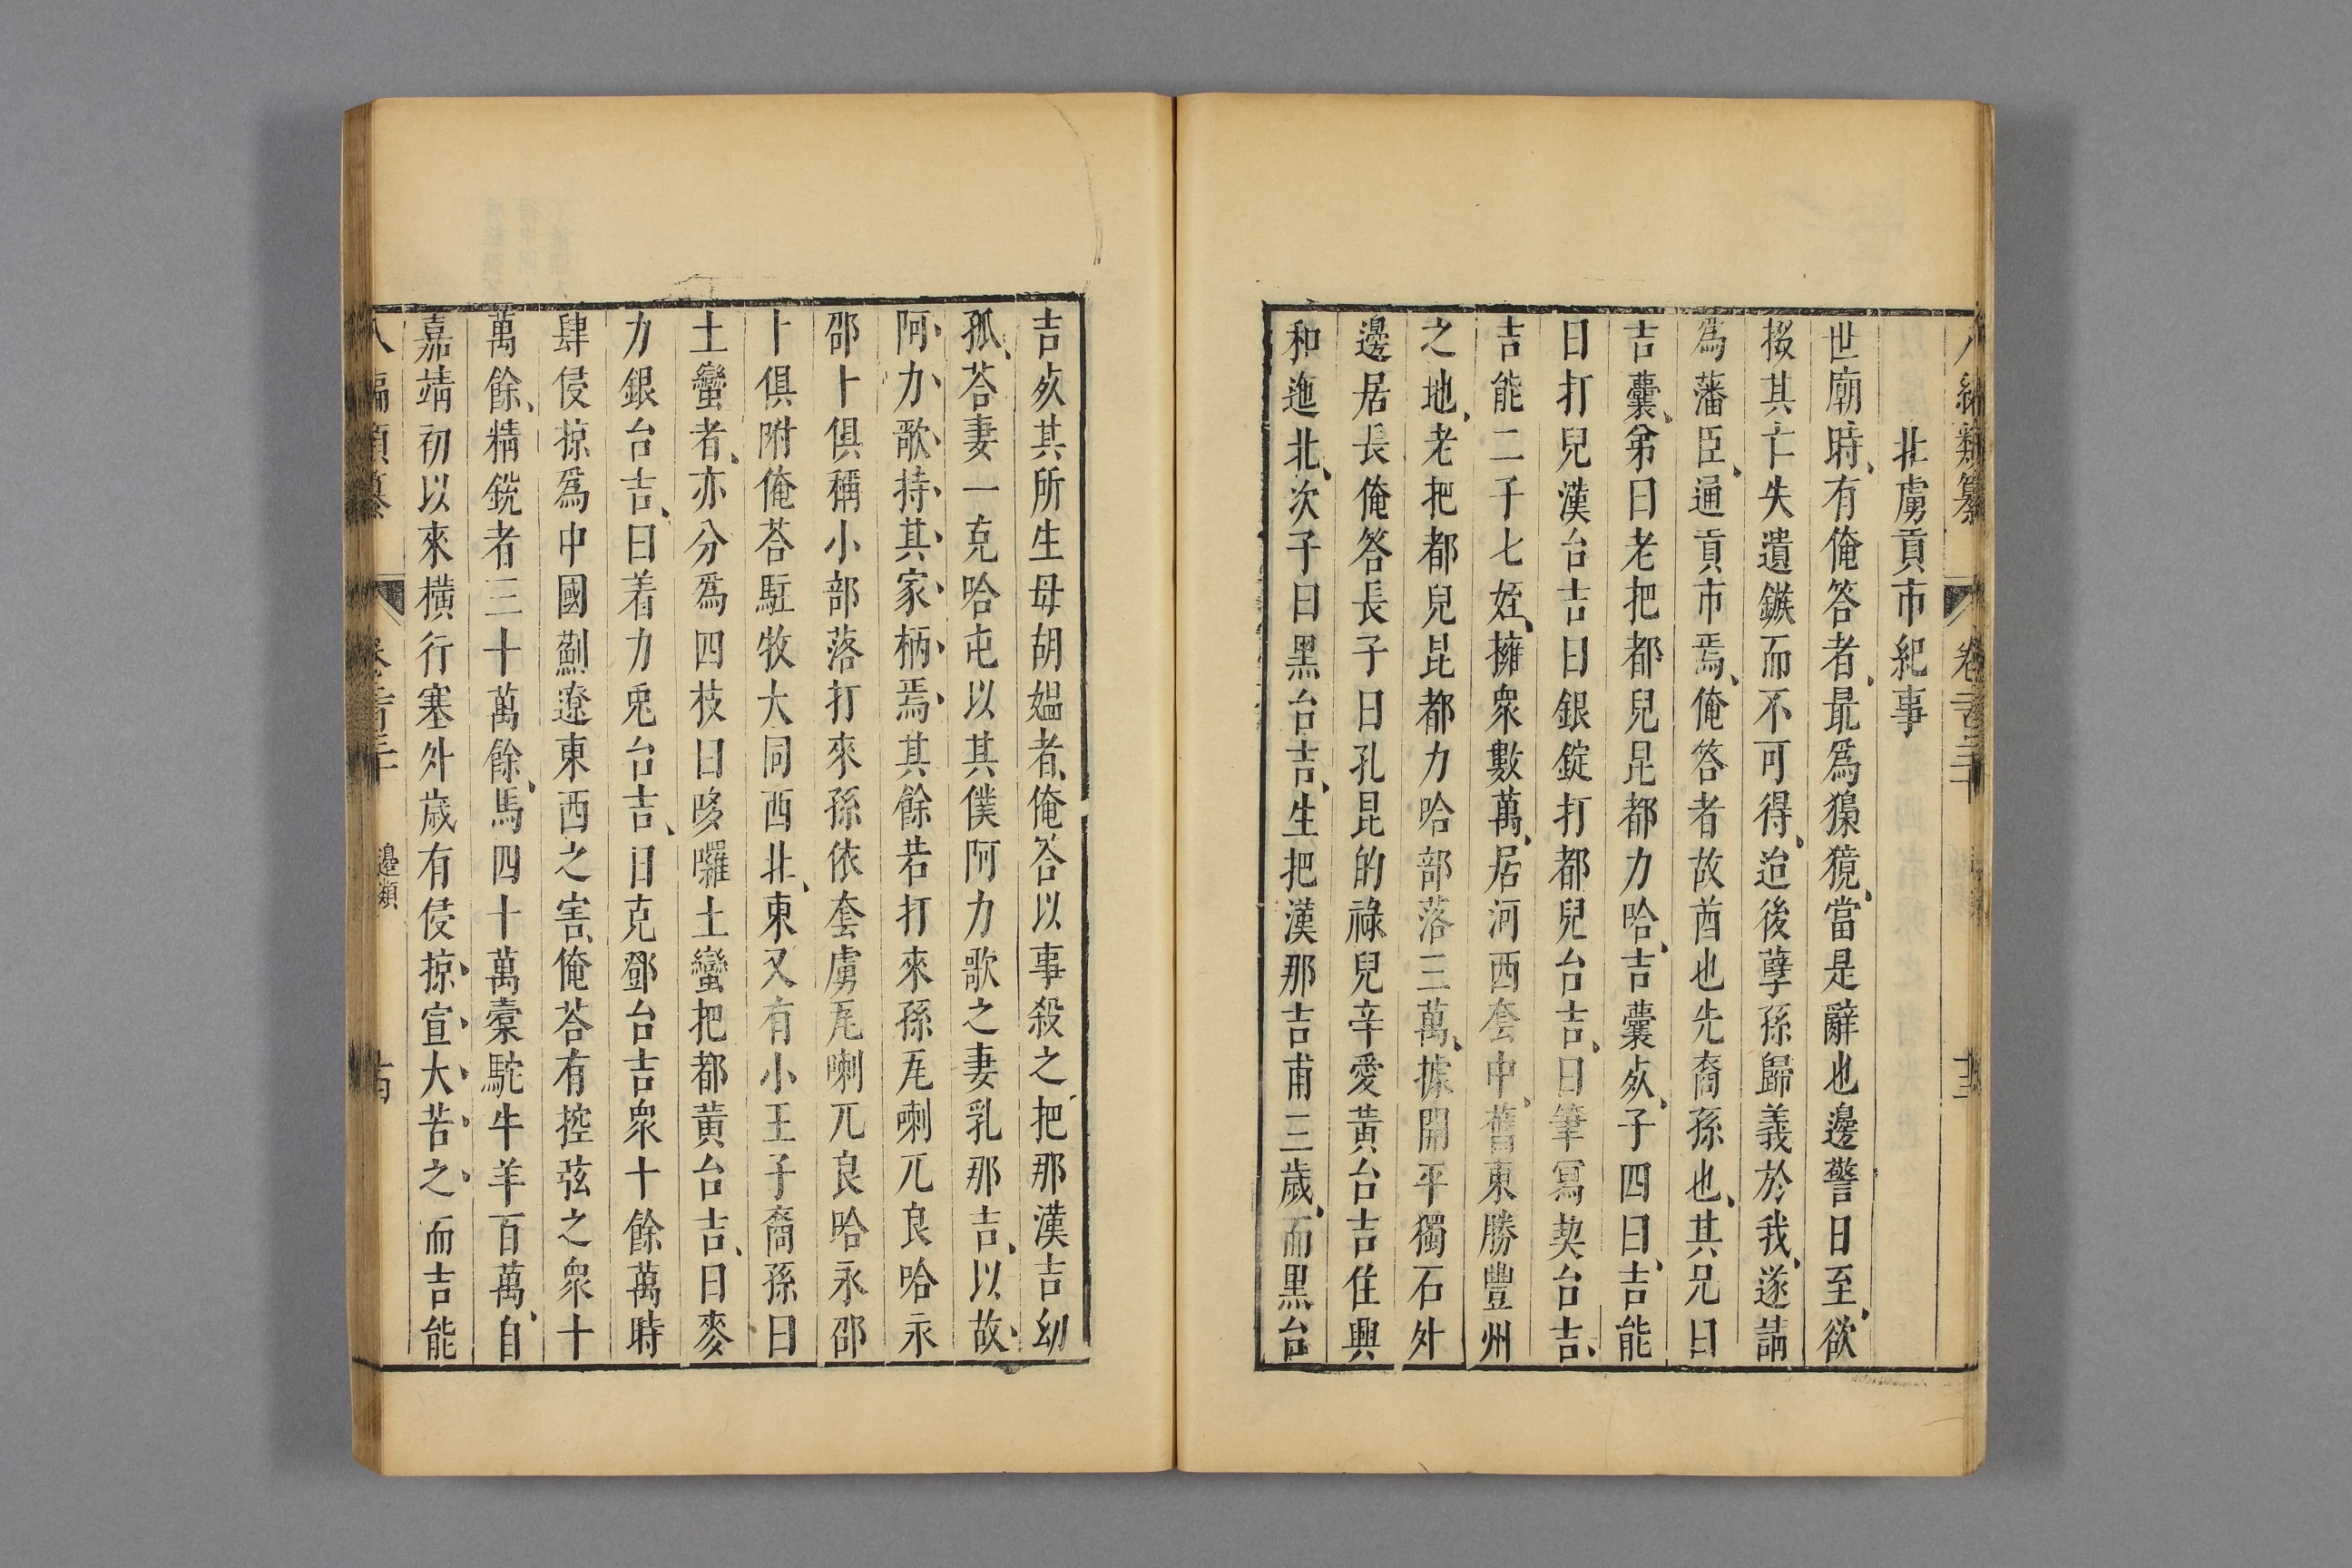 北虜貢市紀事
世廟時有俺答者最爲獟獍當是辭也邊警日至欲
掇其亡失遺鏃而不可得迨後孽孫歸義於我遂請
爲藩臣通貢市焉俺答者故酋也先裔孫也其兄曰
吉囊弟曰老把都兒昆都力哈吉囊死子四曰吉能
曰打兒漢台吉曰銀錠打都兒台吉曰筆寫契台吉
吉能二子七姪擁衆數萬居河西套中舊東勝豐州
之地老把都兒昆都力哈部落三萬據開平獨石外
邊居長俺答長子曰孔昆的祿兒辛愛黃台吉住興
和迤北次子曰黑台吉生把漢那吉甫三歲而黑台
吉死其所生母胡媪者俺答以事殺之把那漢吉幼
孤荅妻一克哈屯以其僕阿力歌之妻乳那吉以故
阿力歌持其家柄焉其餘若打來孫瓦喇兀良哈永
邵卜俱稱小部落打來孫依套虜瓦喇兀良哈永邵
卜俱附俺荅駐牧大同西北東又有小王子裔孫曰
土蠻者亦分爲四枝曰哆囉土蠻把都黃台吉曰麥
力銀台吉曰着力兎台吉曰克鄧台吉衆十餘萬時
肆侵掠爲中國薊遼東西之害俺荅有控弦之衆十
萬餘精銳者三十萬餘馬四十萬槖駝牛羊百萬自
嘉靖初以來橫行塞外歲有侵掠宣大苦之而吉能
邊類